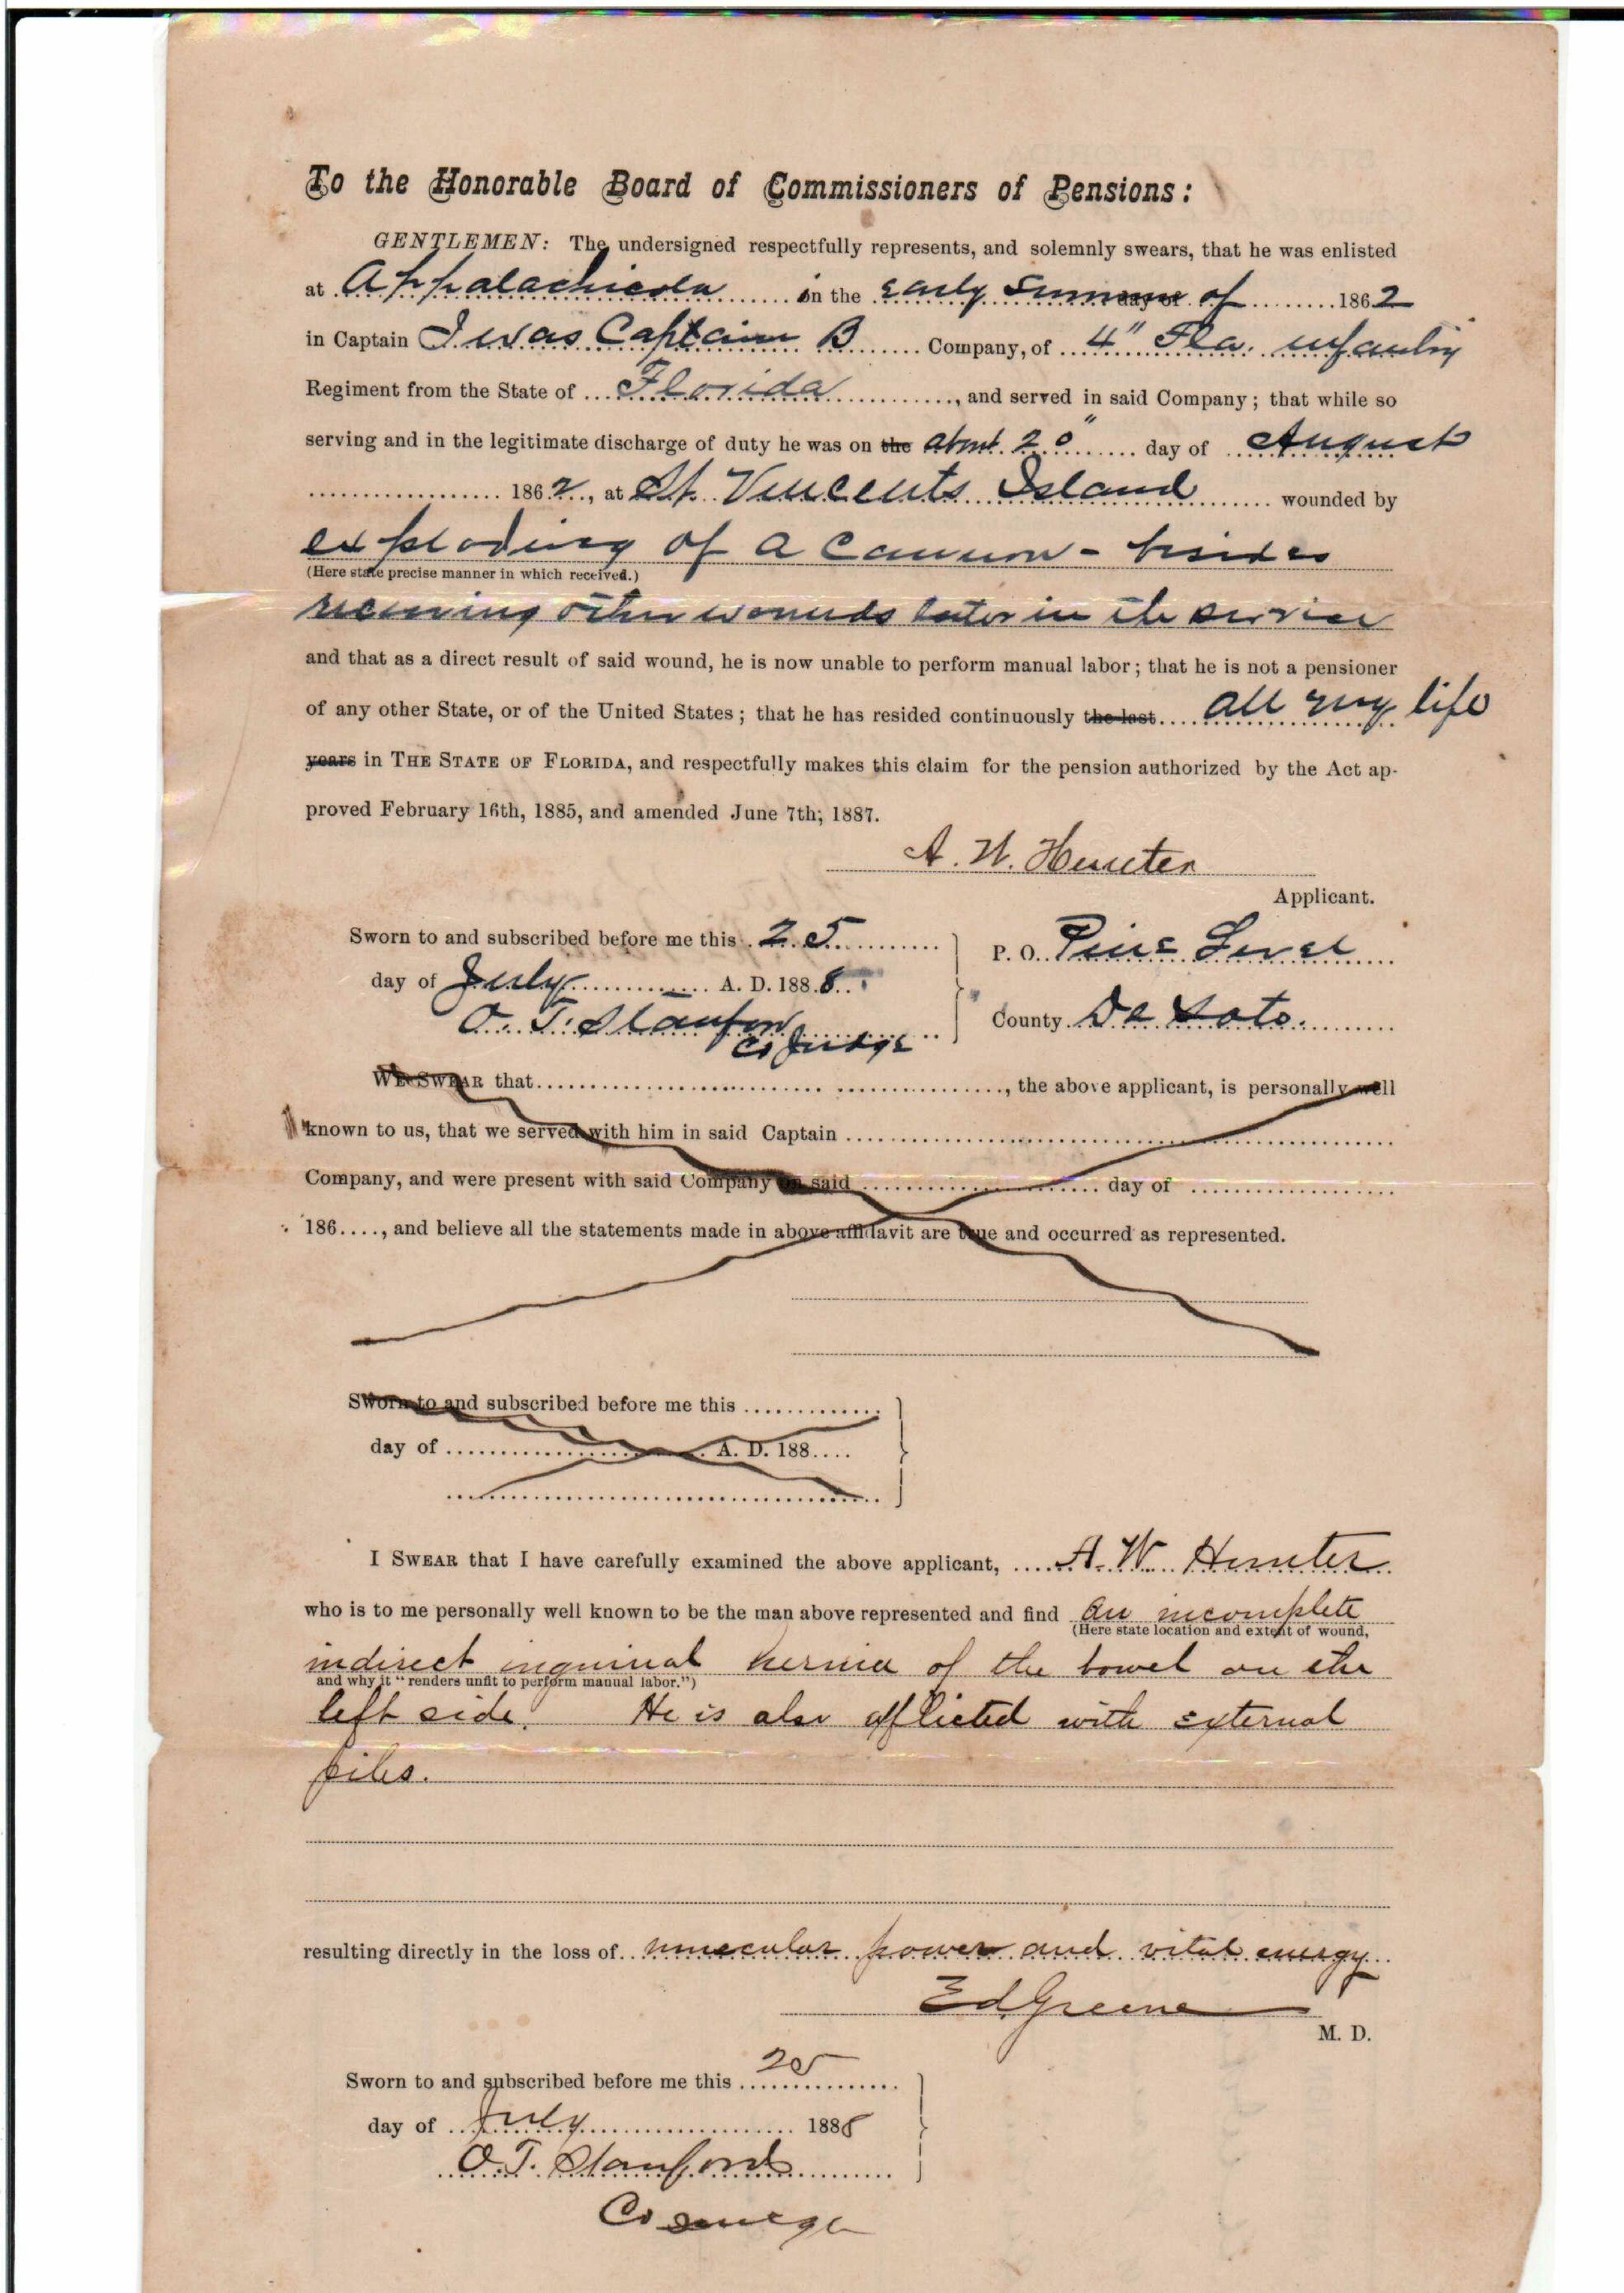 To the Honorable Board of Commissioners of Pensions:
GENTLEMEN: The undersigned respectfully represents, and solemnly swears, that he was enlisted
at Appalachicola in the early Summer day of of 1862
in Captain I was Captain B Company, of 4" Fla. infantry
Regiment from the State of Florida, and served in said Company; that while so
serving and in the legitimate discharge of duty he was on the about 20" day of August
1862, at St. Vincents Island wounded by
exploding of a cannon - besides
(Here state precise manner in which received.)
receiving other wounds later in the service
and that as a direct result of said wound, he is now unable to perform manual labor; that he is not a pensioner
of any other State, or of the United States; that he has resided continuously the last all my life
years in THE STATE OF FLORIDA, and respectfully makes this claim for the pension authorized by the Act ap-
proved February 16th, 1885, and amended June 7th, 1887.
A. W. Hunter
Applicant.
Sworn to and subscribed before me this 25
day of July A. D. 1888
O. T. Stanford
Co Judge
P. O. Pine Level
County De Soto.
WE SWEAR that ................, the above applicant, is personally well
known to us, that we served with him in said Captain ................
Company, and were present with said Company on said ................ day of ................
186...., and believe all the statements made in above affidavit are true and occurred as represented.
Sworn to and subscribed before me this .............
day of ................ A. D. 188....
I SWEAR that I have carefully examined the above applicant, A. W. Hunter
who is to me personally well known to be the man above represented and find an incomplete
(Here state location and extent of wound,
indirect inguinal hernia of the bowel on the
and why it "renders unfit to perform manual labor.")
left side. He is also afflicted with external
piles.
resulting directly in the loss of muscular power and vital energy
Ed. Greene
M. D.
Sworn to and subscribed before me this 25
day of July 1888
O. T. Stanford
Co Judge